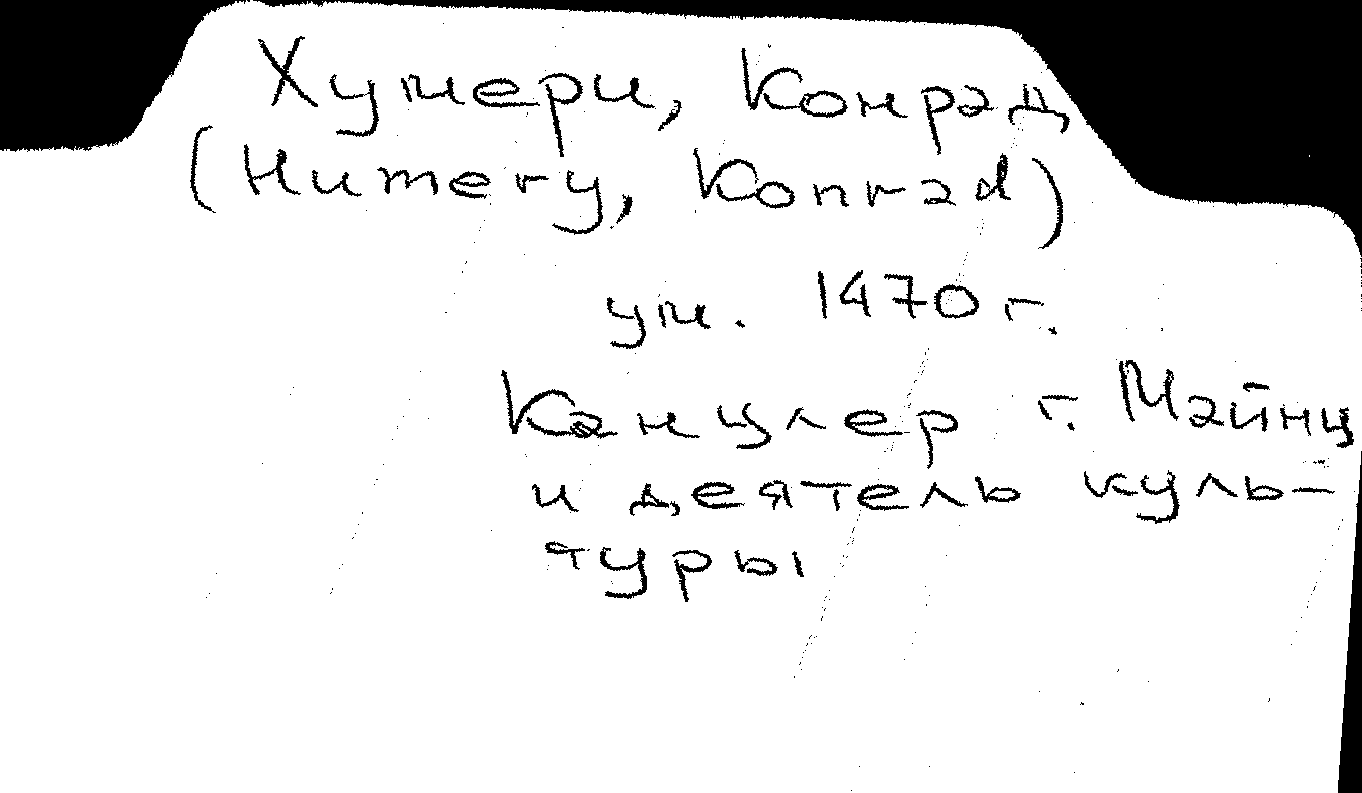 Хумери, Конрад
(Humery, Konrad)
ум. 1470 г.
Канцлер г. Майнц
и деятель куль-
туры